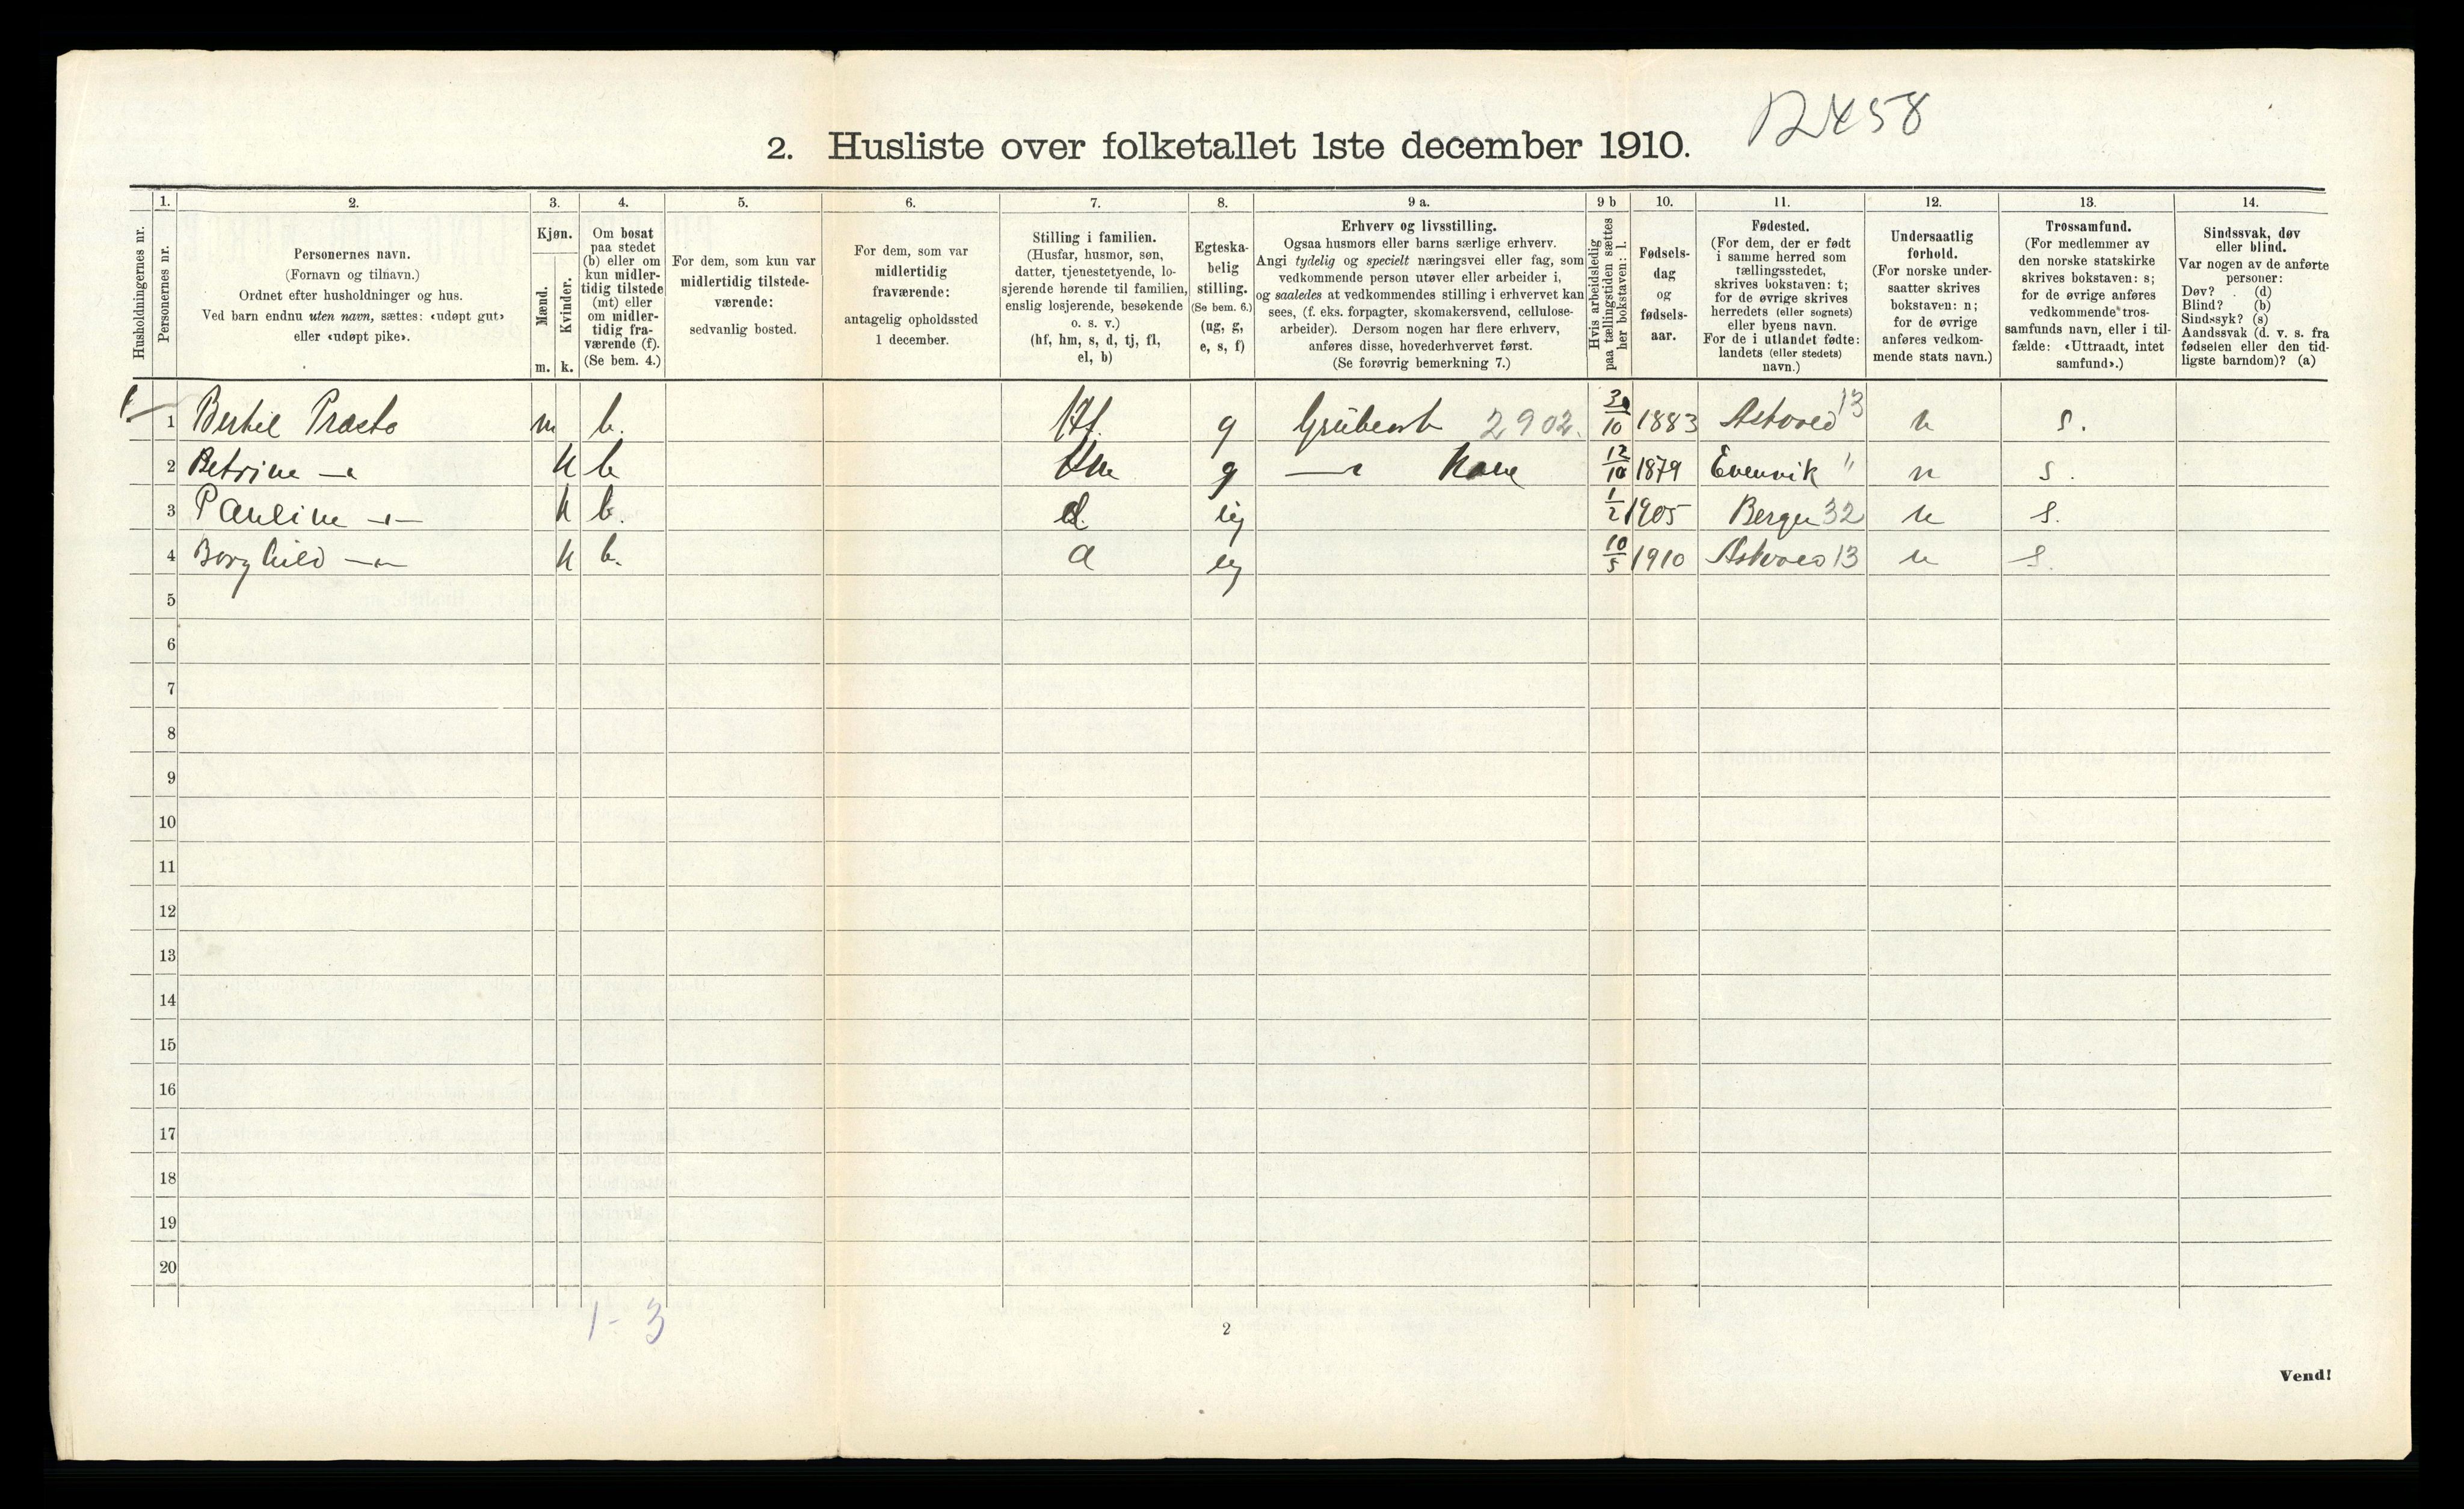 2458
2. Husliste over folketallet 1ste december 1910.
Husholdningernes nr.
1.
Personernes nr.
2.
Personernes navn.
(Fornavn og tilnavn.)
Ordnet efter husholdninger og hus.
Ved barn endnu uten navn, sættes: «udøpt gut»
eller «udøpt pike».
3.
Kjøn.
Mænd.
m.
Kvinder.
k.
4.
Om bosat
paa stedet
(b) eller om
kun midler-
tidig tilstede
(mt) eller
om midler-
tidig fra-
værende (f).
(Se bem. 4.)
5.
For dem, som kun var
midlertidig tilstede-
værende:
sedvanlig bosted.
6.
For dem, som var
midlertidig
fraværende:
antagelig opholdssted
1 december.
7.
Stilling i familien.
(Husfar, husmor, søn,
datter, tjenestetyende, lo-
sjerende hørende til familien,
enslig losjerende, besøkende
o. s. v.)
(hf, hm, s, d, tj, fl,
el, b)
8.
Egteska-
belig
stilling.
(Se bem. 6.)
(ug, g,
e, s, f)
9 a.
Erhverv og livsstilling.
Ogsaa husmors eller barns særlige erhverv.
Angi tydelig og specielt næringsvei eller fag, som
vedkommende person utøver eller arbeider i,
og saaledes at vedkommendes stilling i erhvervet kan
sees, (f. eks. forpagter, skomakersvend, cellulose-
arbeider). Dersom nogen har flere erhverv,
anføres disse, hovederhvervet først.
(Se forøvrig bemerkning 7.)
9 b
Hvis arbeidsledig
paa tællingstiden sættes
her bokstaven: l.
10.
Fødsels-
dag
og
fødsels-
aar.
11.
Fødested.
(For dem, der er født
i samme herred som
tællingsstedet,
skrives bokstaven: t;
for de øvrige skrives
herredets (eller sognets)
eller byens navn.
For de i utlandet fødte:
landets (eller stedets)
navn.)
12.
Undersaatlig
forhold.
(For norske under-
saatter skrives
bokstaven: n;
for de øvrige
anføres vedkom-
mende stats navn.)
13.
Trossamfund.
(For medlemmer av
den norske statskirke
skrives bokstaven: s;
for de øvrige anføres
vedkommende tros-
samfunds navn, eller i til-
fælde: «Uttraadt, intet
samfund».)
14.
Sindssvak, døv
eller blind.
Var nogen av de anførte
personer:
Døv? . (d)
Blind? (b)
Sindssyk? (s)
Aandssvak (d. v. s. fra
fødselen eller den tid-
ligste barndom)? (a)
1 Bertil Præsto m b. Hf. g 2902. 10 1883 Askvold 13 n s.
2 Petrine —"— k b Hm g —"— Kone 12/10 1879 Evenvik " n s.
3 Pauline —"— k b. d. ug 1/2 1905 Bergen 32 n s.
4 Borghild —"— k b. d ug 10/5 1910 Askvold 13 n s.
5
6
7
8
9
10
11
12
13
14
15
16
17
18
19
20
1 - 3
2
Vend!